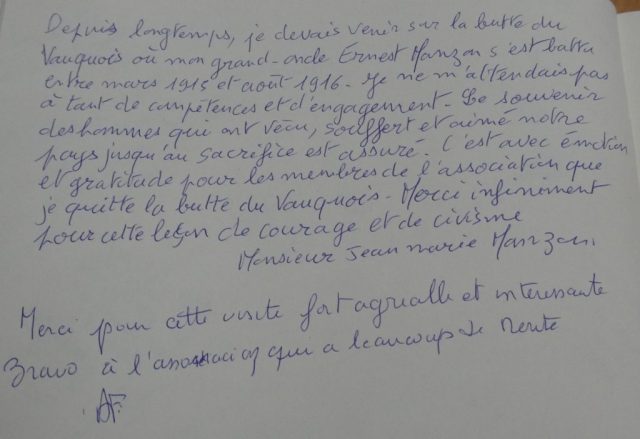 Depuis longtemps, je devais venir sur la butte du
Vauquois où mon grand-oncle Ernest Manzon s'est battu
entre mars 1915 et août 1916. Je ne m'attendais pas
à tant de compétences et d'engagement. Le souvenir
des hommes qui ont vécu, souffert et aimé notre
pays jusqu'au sacrifice est assuré. C'est avec émotion
et gratitude pour les membres de l'association que
je quitte la butte du Vauquois. Merci infiniment
pour cette leçon de courage et de civisme
Monsieur Jean marie Manzon
Merci pour cette visite fort agréable et interessante
Bravo à l'association qui a beaucoup de merite